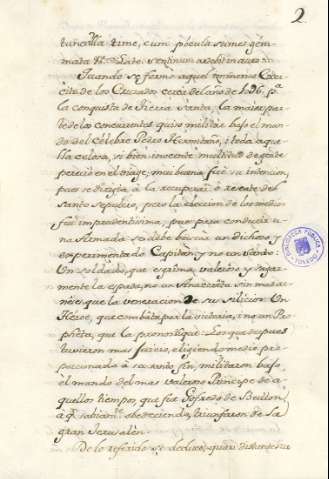 2
tunc illa time, cum pocula sumes gem-
mata
Quando se formó aquel numeroso Exer-
cito de los Cruzados cerca del año de 1096. pª
la conquista de Tierra Santa, la maior par
te de los concurrentes quiso militar bajo el man
do del célebre Pedro Hermitaño, i toda aque
lla celosa, si bien inocente multitud de gente
pereció en el viage; mui buena fue su intencion,
pues se dirigia à la recuperacion ò rescate del
Santo Sepulcro, pero la eleccion de los medios
fue imprudentissima; pues para conducir u-
na Armada se debe buscar un dichoso y
experimentado Capitan y no un Santo:
Un soldado, que esgrima valerosa y
mente la espada, no un Anacoreta sin mas ar
nes que la veneracion de su silicio: Un
Heroe, que combata por la victoria, i no un Pro
pheta, que la pronostique. Los que despues
tuvieron mas juicio, eligiendo medio pro-
porcionado à su santo fin, militaron bajo
el mando del mas valeroso Principe de a
quellos tiempos, que fue Gofredo de Bullon,
à qn. sabiamte. obedeciendo, triunfaron de la
gran Jerusalèn.
De lo referido se deduce, quan distante
BIBLIOTECA PUBLICA
TOLEDO